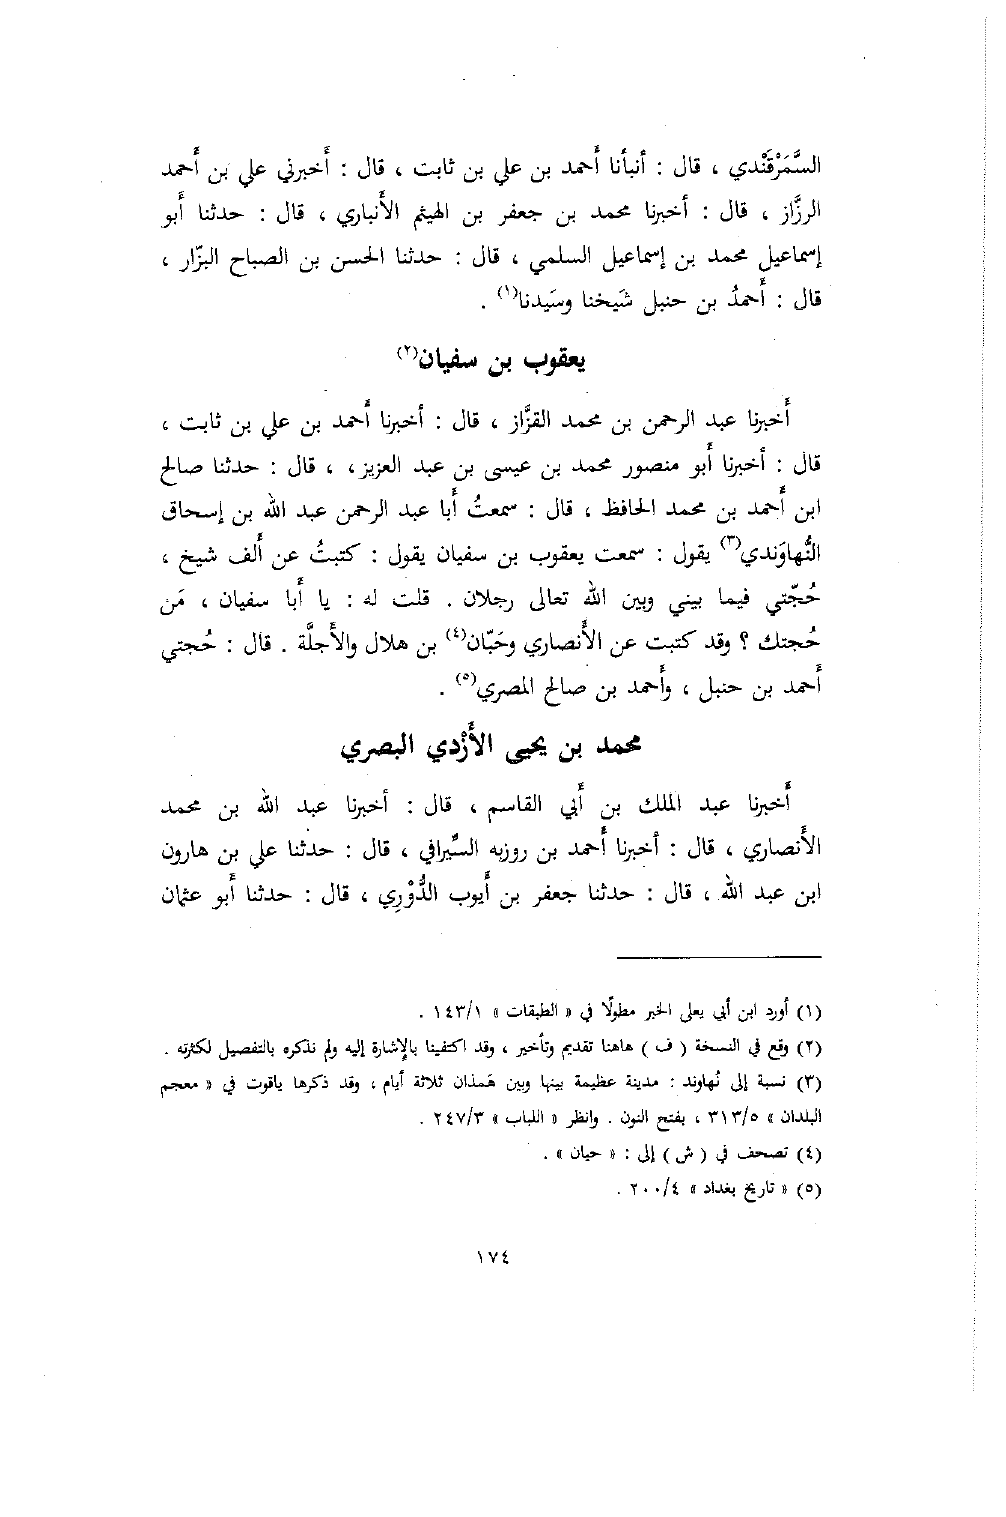 السَّمَرْقَنْدي ، قال : أنبأنا أَحمد بن علي بن ثابت ، قال : أَخبرني علي بن أَحمد
الرزَّاز ، قال : أخبرنا محمد بن جعفر بن الهيثم الأَنباري ، قال : حدثنا أَبو
إسماعيل محمد بن إسماعيل السلمي ، قال : حدثنا الحسن بن الصباح البزّار ،
قال : أَحمدُ بن حنبل شَيخنا وسَيدنا(١) .
يعقوب بن سفيان(٢)
أَخبرنا عبد الرحمن بن محمد القزَّاز ، قال : أخبرنا أَحمد بن علي بن ثابت ،
قال : أخبرنا أَبو منصور محمد بن عيسى بن عبد العزيز ، ، قال : حدثنا صالح
ابن أَحمد بن محمد الحافظ ، قال : سمعتُ أَبا عبد الرحمن عبد الله بن إسحاق
النُّهاوَندي(٣) يقول : سمعت يعقوب بن سفيان يقول : كتبتُ عن أَلف شيخ ،
حُجّتي فيما بيني وبين الله تعالى رجلان . قلت له : يا أَبا سفيان ، مَن
حُجتك ؟ وقد كتبت عن الأَنصاري وحَبّان(٤) بن هلال والأَجلَّة . قال : حُجتي
أَحمد بن حنبل ، وأَحمد بن صالح المصري(٥) .
محمد بن يحيى الأَزْدي البصري
أَخبرنا عبد الملك بن أَبي القاسم ، قال : أخبرنا عبد الله بن محمد
الأَنصاري ، قال : أخبرنا أَحمد بن روزبه السِّيرافي ، قال : حدثنا علي بن هارون
ابن عبد الله ، قال : حدثنا جعفر بن أَيوب الدُّوْرِي ، قال : حدثنا أَبو عثمان
(١) أورد ابن أبي يعلى الخبر مطولًا في « الطبقات » ١٤٣/١ .
(٢) وقع في النسخة ( ف ) هاهنا تقديم وتأخير ، وقد اكتفينا بالإشارة إليه ولم نذكره بالتفصيل لكثرته .
(٣) نسبة إلى نُهاوند : مدينة عظيمة بينها وبين هَمذان ثلاثة أيام ، وقد ذكرها ياقوت في « معجم
البلدان » ٣١٣/٥ ، بفتح النون . وانظر « اللباب » ٢٤٧/٣ .
(٤) تصحف في ( ش ) إلى : « حيان » .
(٥) « تاريخ بغداد » ٢٠٠/٤ .
١٧٤